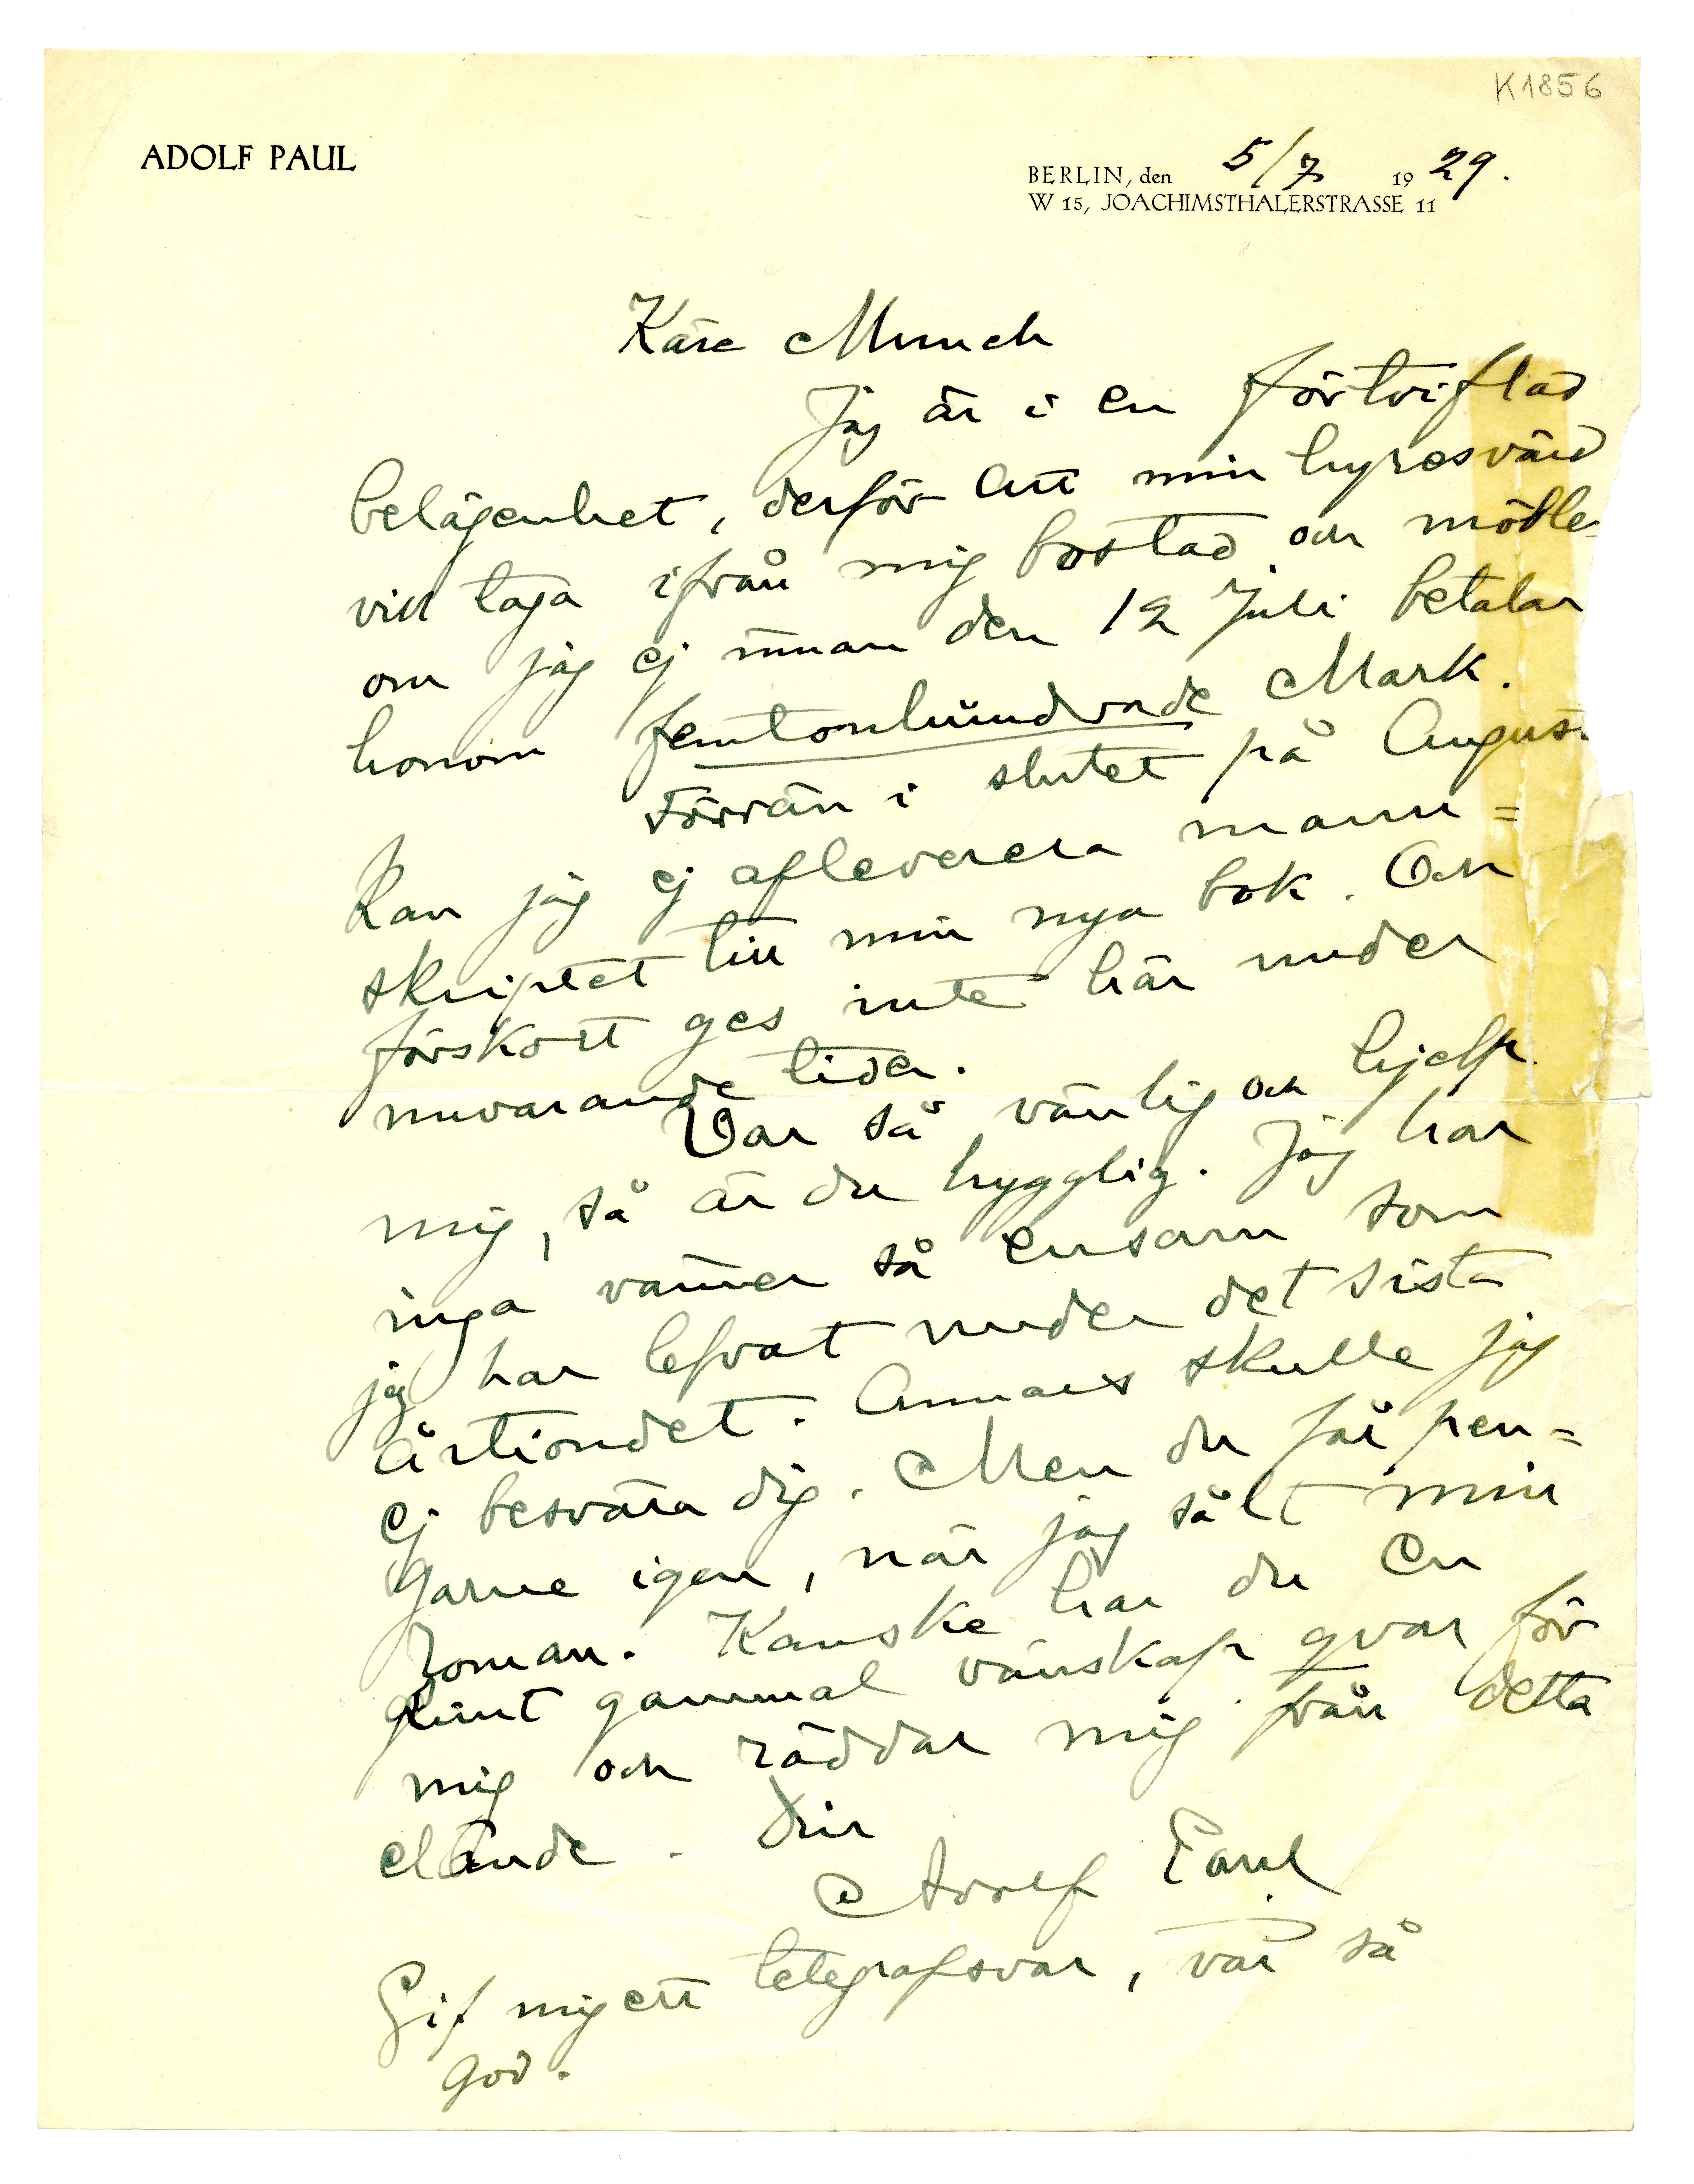 K1856
ADOLF PAUL
BERLIN, den 5/7 1929.
W 15, JOACHIMSTHALERSTRASSE 11
Käre Munch
Jag är i en förtviflad
belägenhet, derför att min hyresvärd
vill taga ifrån mig bostad och möble
om jag ej innan den 12 Juli betalar
honom femtonhundrade Mark.
Förrän i slutet på August
kan jag ej aflevererera manu=
skriptet till min nya bok. Och
förskott ges inte här under
nuvarande tider.
Var så vänlig och hjelp
mig, så är du hygglig. Jag har
inga vänner så ensam som
jag har lefvat under det sista
årtiondet. Annars skulle jag
ej besvära dig. Men du får pen=
garne igen, när jag sålt min
roman. Kanske har du en
glimt gammal vänskap qvar för
mig och räddar mig från detta
elände. Din
Adolf Paul
Gif mig ett telegrafsvar, var så
god.